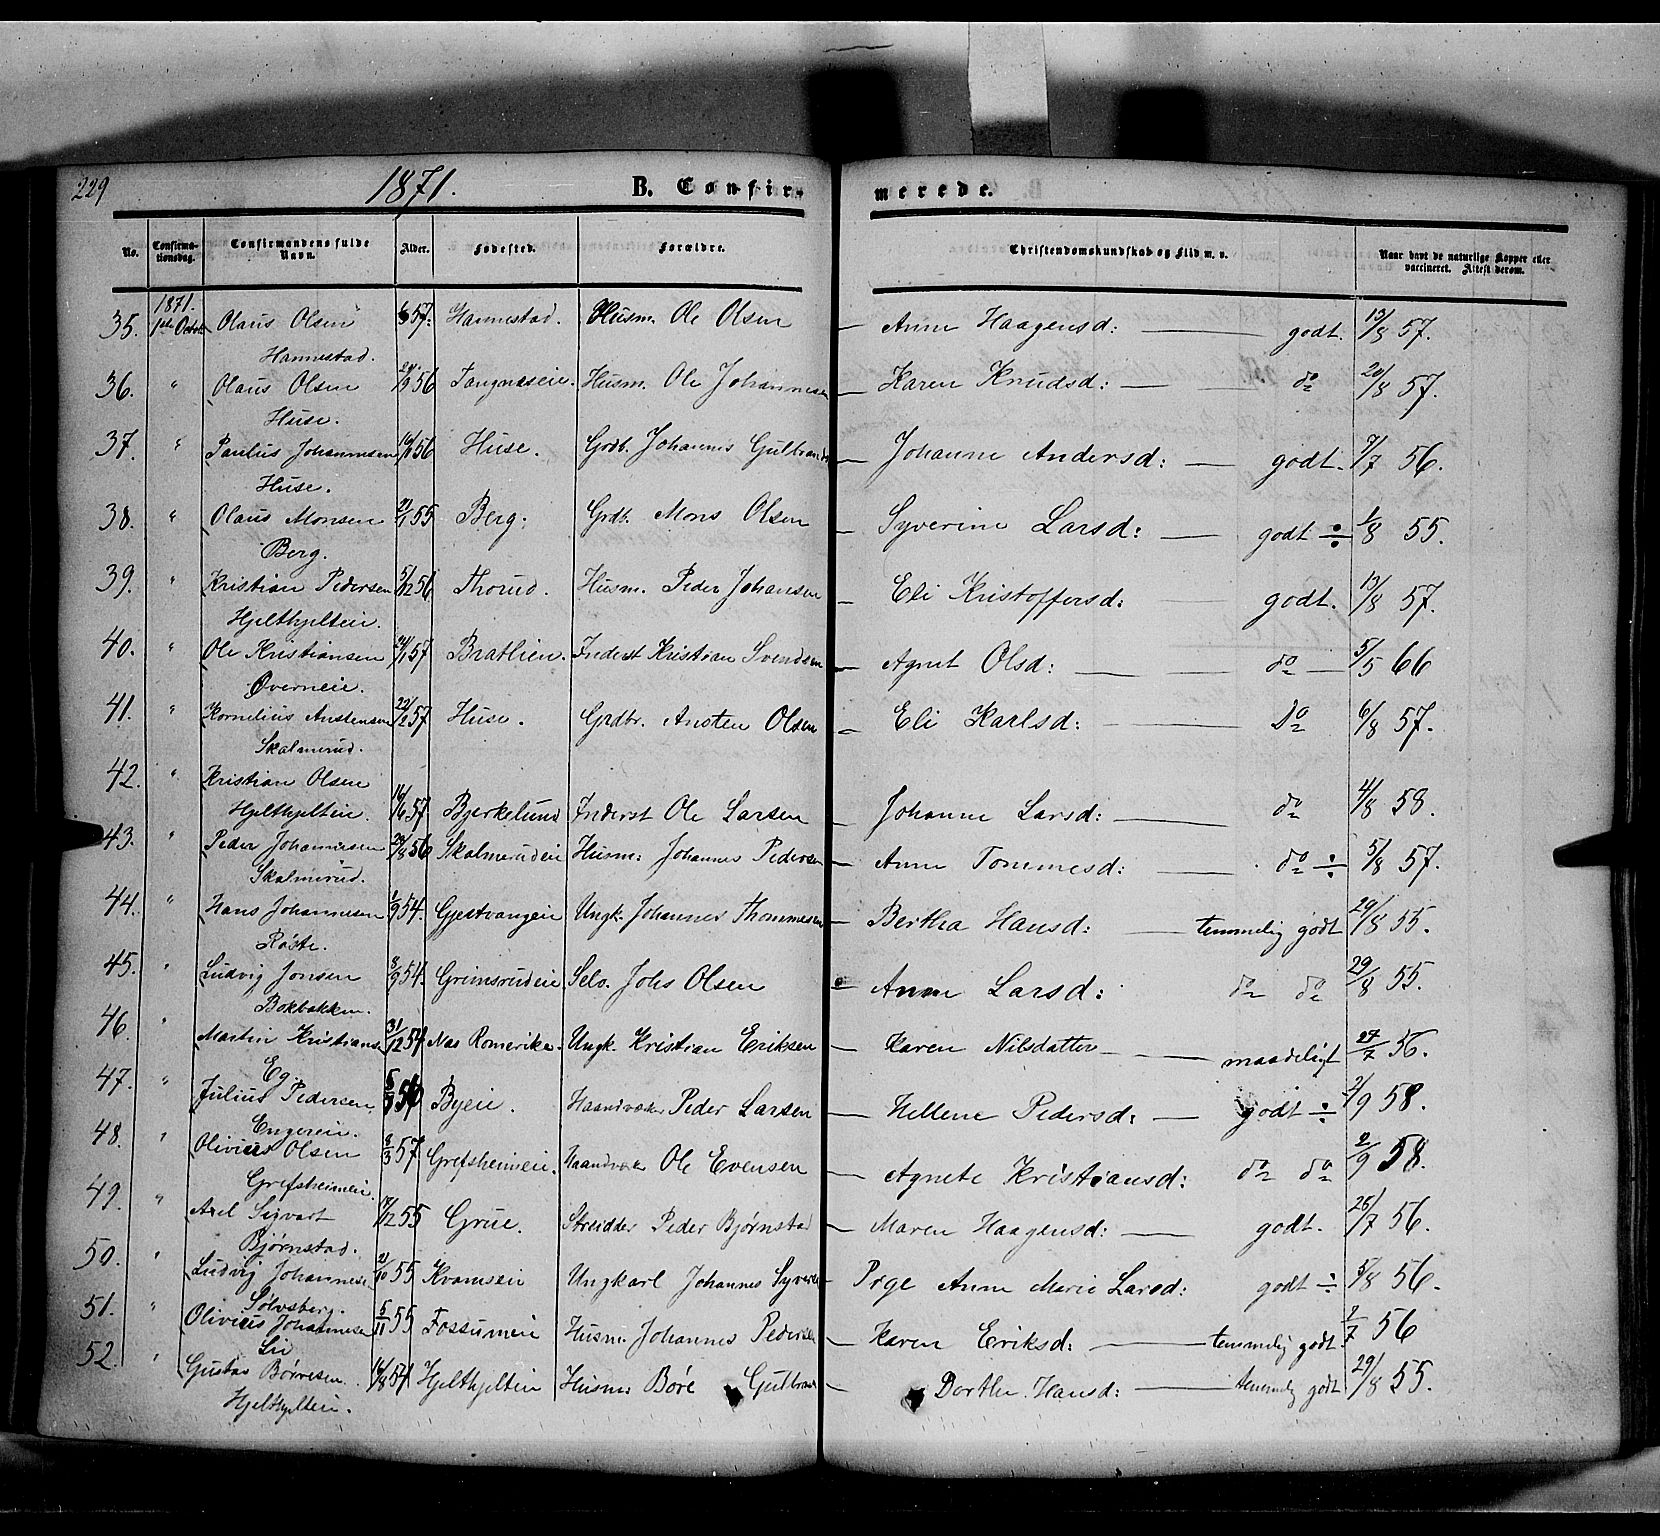 229 1871. B. Confirmerede.
No. Confirmationsdag. Confirmandens fulde Navn. Alder. Fødested. Forældre. Christendomskundskab og Flid m. v. Naar havt de naturlige Kopper eller vaccineret. Attest derom.
1871.
35. 1ste Octob. Olaus Olsen 57. Hannestad. Husm. Ole Olsen — Anne Haagensd: — godt. 13/8 57.
Hannestad.
36. " Olaus Olsen 29/9 56 Tangnæseie. Husm. Ole Johannesen — Karen Knudsd: — do 20/8 57.
Huse.
37. " Paulus Johannesen 56 Huse. Grdb. Johannes Gulbrands — Johanne Andersd: — godt. 7/7 56.
Huse.
38. " Olaus Monsen 55 Berg. Grdb. Mons Olsen — Syverine Larsd: — godt ÷ 1/8 55.
Berg.
39. " Kristian Pedersen 5/12 56 Thorud. Husm. Peder Johansen — Eli Kristoffersd: — godt. 13/8 57.
Hjelthjelteie.
40. " Ole Kristiansen 24/1 57 Bratlien. Inderst Kristian Svendsen — Agnet Olsd: — do — 5/5 66
Øverneie.
41. " Kornelius Anstensen 22/2 57 Huse. Grdbr. Ansten Olsen — Eli Karlsd: — Do 6/8 57.
Skalmerud.
42. " Kristian Olsen
Hjelthjelteie. 16/6 57 Bjerkelund Inderst Ole Larsen — Johanne Larsd: — do 4/8 58.
43. " Peder Johannesen 29/8 56 Skalmerudeie Husm: Johannes Pedersen — Anne Tommesd: — do ÷ 5/8 57.
Skalmerud.
44. " Hans Johannesen 1/9 54. Gjestvangeie Ungk. Johannes Thommesen — Bertha Hansd: — temmelig godt 29/8 55.
Røste.
45. " Ludvig Jonsen 8/9 54. Grimsrudeie Selv. Johs Olsen — Anne Larsd: do do 29/8 55.
Bokbakken.
46. " Martin Kristians 31/12 54 Næs Romerike. Ungk. Kristian Eriksen — Karen Nilsdatter — maadeligt 27/7 56.
Eg.
47. " Julius Pedersen 56 Byeie. Haandværk Peder Larsen — Hellene Pedersd: — godt ÷ 2/9 58.
Engereie.
48. " Olivius Olsen 8/3 57 Grefsheimeie. Haandværk Ole Evensen — Agnete Kristiansd: do do 2/9 58.
Grefsheimeie.
49. " Axel Sigvart 18/12 55 Grue. Skrædder Peder Bjørnstad — Maren Haagensd: — godt. 26/7 56.
Bjørnstad.
50. " Ludvig Johannese 2/10 55 Kvamseie Ungkarl Johannes Syvers — Pige Anne Marie Larsd: godt ÷ 5/8 56.
Sølvsberg.
51. " Olivius Johannesen 5/11 55 Fossumeie Husm. Johannes Pedersen — Karen Eriksd: — temmelig godt. 2/7 56
Lie
52. " Gustav Børresen. 16/8 54 Hjelthjelteie Husm: Børe Gulbrand — Dorthe Hansd: — temmelig godt 29/8 55.
Hjelthjelteie.